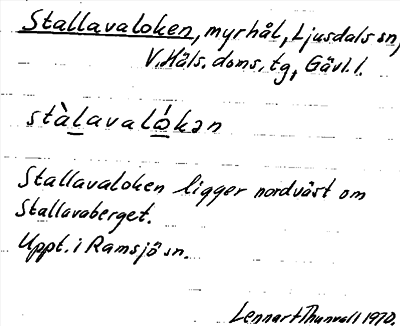 Stallavaloken, myrhål, Ljusdals sn,
V. Häls. doms. tg, Gävl. l.
stàlavalókən
Stallavaloken ligger nordväst om
Stallavaberget.
Uppt. i Ramsjö sn.
Lennart Thunvall 1970.